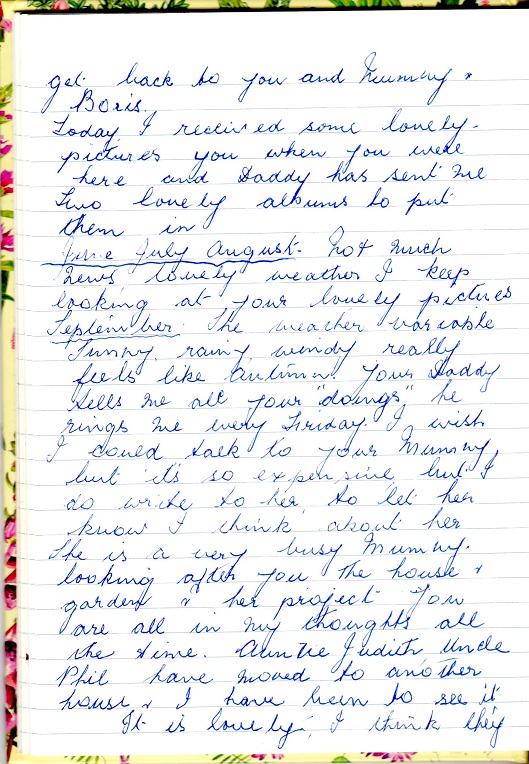 get back to you and Mummy &
Boris.
Today I received some lovely
pictures you when you were
here and Daddy has sent me
Two lovely albums to put
them in
June July August. Not much
news lovely weather I keep
looking at your lovely pictures
September. The weather variable
Sunny, rainy, windy really
feels like autumn. Your Daddy
tells me all your "doings" he
rings me every Friday. I wish
I could talk to your Mummy,
but it's so expensive, but I
do write to her, to let her
know I think about her
She is a very busy Mummy.
looking after you the house &
garden & her project. You
are all in my thoughts all
the time. Auntie Judith Uncle
Phil have moved to another
house & I have been to see it
It is lovely, I think they